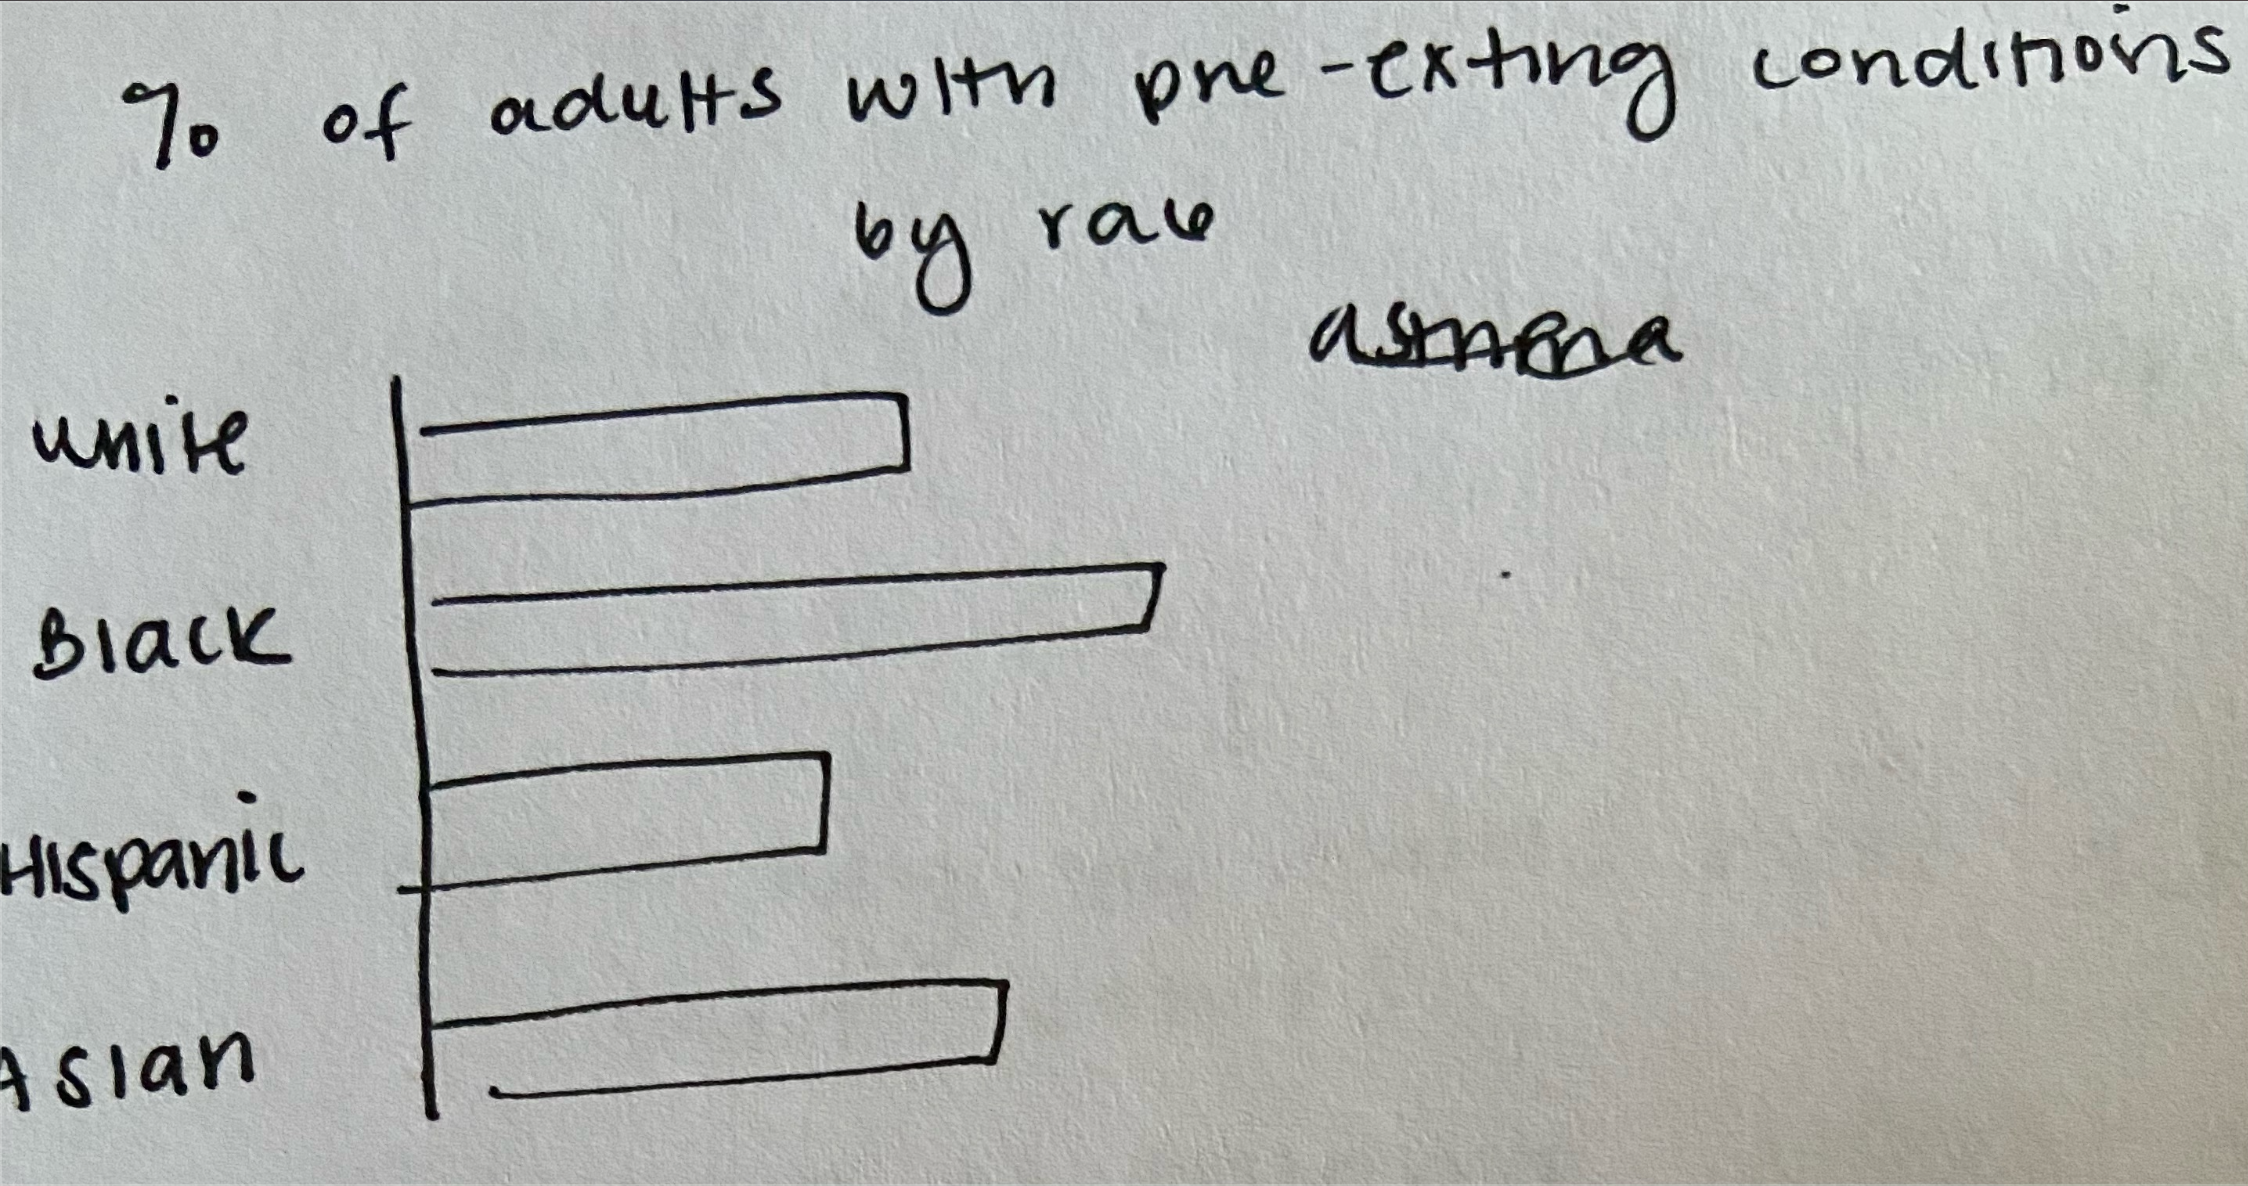 % of adults with pre-exting conditions
by race
asthma
White
Black
Hispanic
Asian